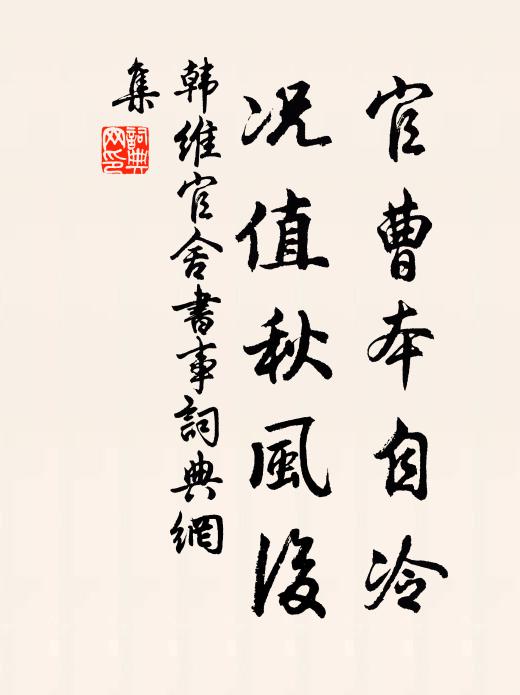 官曹本自冷
況值秋風後
韩維官舍書事詞典網
集
詞典网印